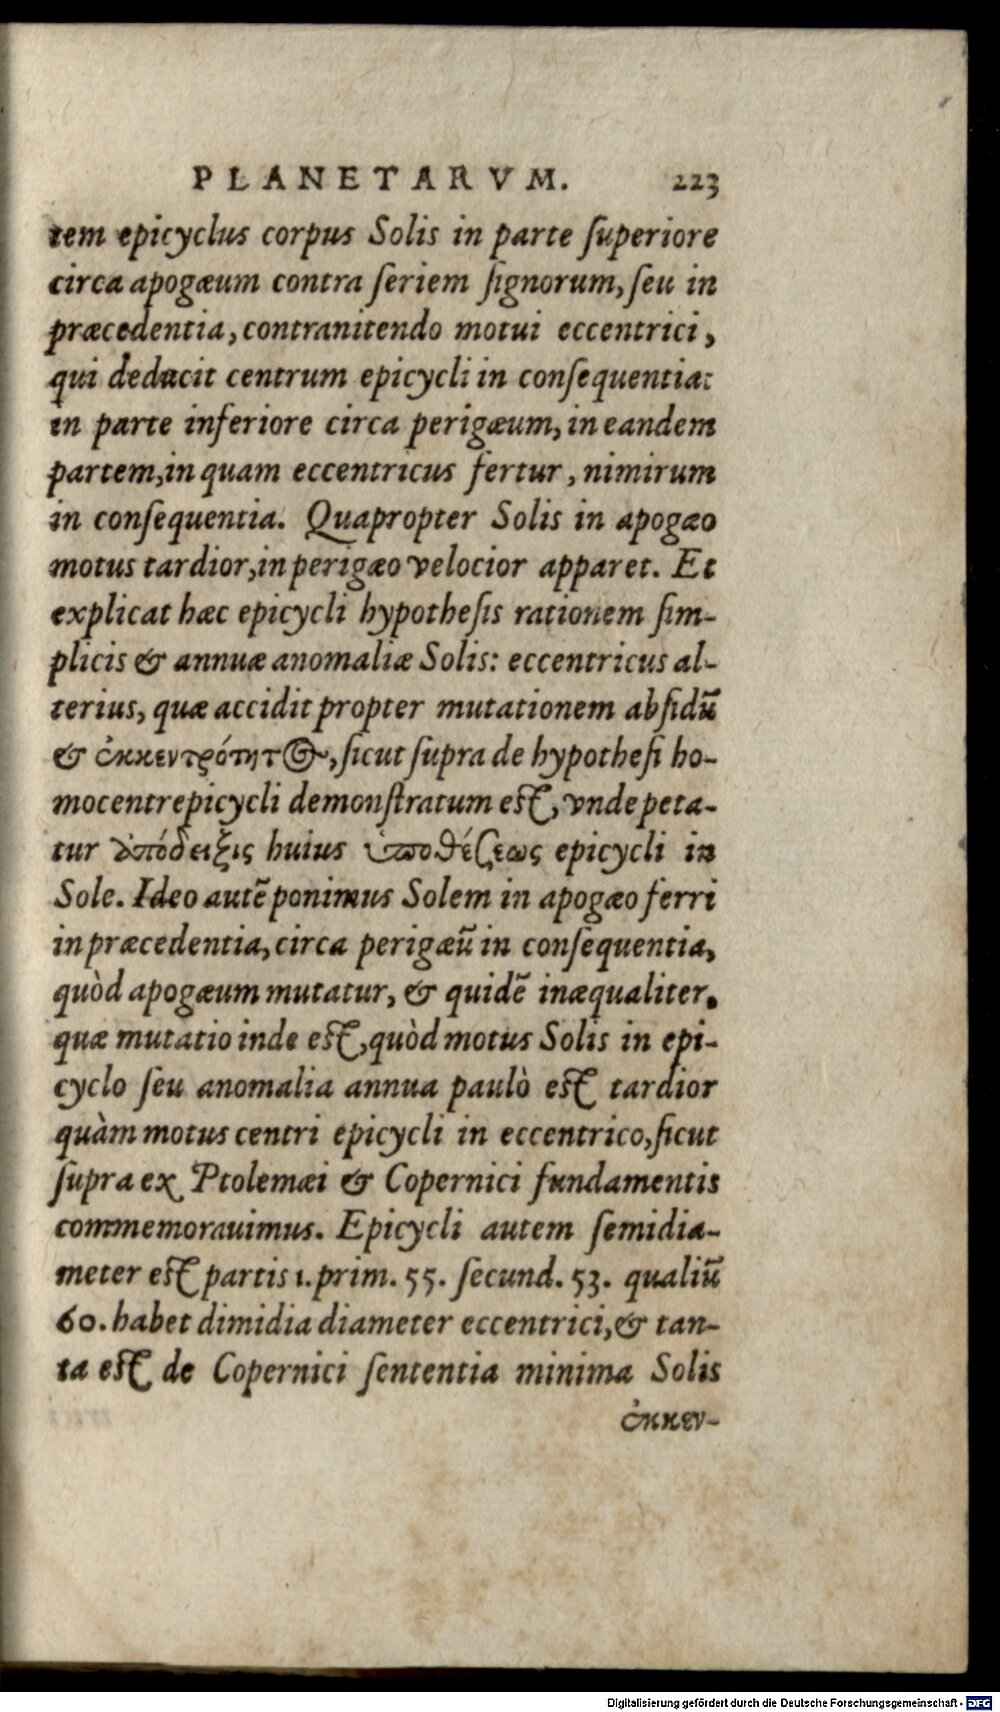 PLANETARVM. 223
tem epicyclus corpus Solis in parte ſuperiore
circa apogæum contra ſeriem ſignorum, ſeu in
præcedentia, contranitendo motui eccentrici,
qui deducit centrum epicycli in conſequentia:
in parte inferiore circa perigæum, in eandem
partem, in quam eccentricus fertur, nimirum
in conſequentia. Quapropter Solis in apogæo
motus tardior, in perigæo velocior apparet. Et
explicat hæc epicycli hypotheſis rationem ſim-
plicis & annuæ anomaliæ Solis: eccentricus al-
terius, quæ accidit propter mutationem abſidū
& ἐκκεντρότητος, ſicut ſupra de hypotheſi ho-
mocentrepicycli demonſtratum eſt, vnde peta-
tur ἀπόδειξις huius ὑποθέσεως epicycli in
Sole. Ideo autē ponimus Solem in apogæo ferri
in præcedentia, circa perigæū in conſequentia,
quòd apogæum mutatur, & quidē inæqualiter.
quæ mutatio inde eſt, quòd motus Solis in epi-
cyclo ſeu anomalia annua paulò eſt tardior
quàm motus centri epicycli in eccentrico, ſicut
ſupra ex Ptolemæi & Copernici fundamentis
commemorauimus. Epicycli autem ſemidia-
meter eſt partis 1. prim. 55. ſecund. 53. qualiū
60. habet dimidia diameter eccentrici, & tan-
ta eſt de Copernici ſententia minima Solis
ἐκκεν-
Digitalisierung gefördert durch die Deutsche Forschungsgemeinschaft - DFG